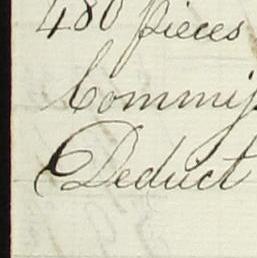 480 pieces
Commiſ
Deduct